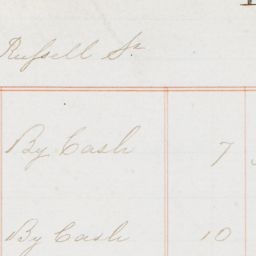 Russell St
By Cash 7
By Cash 10